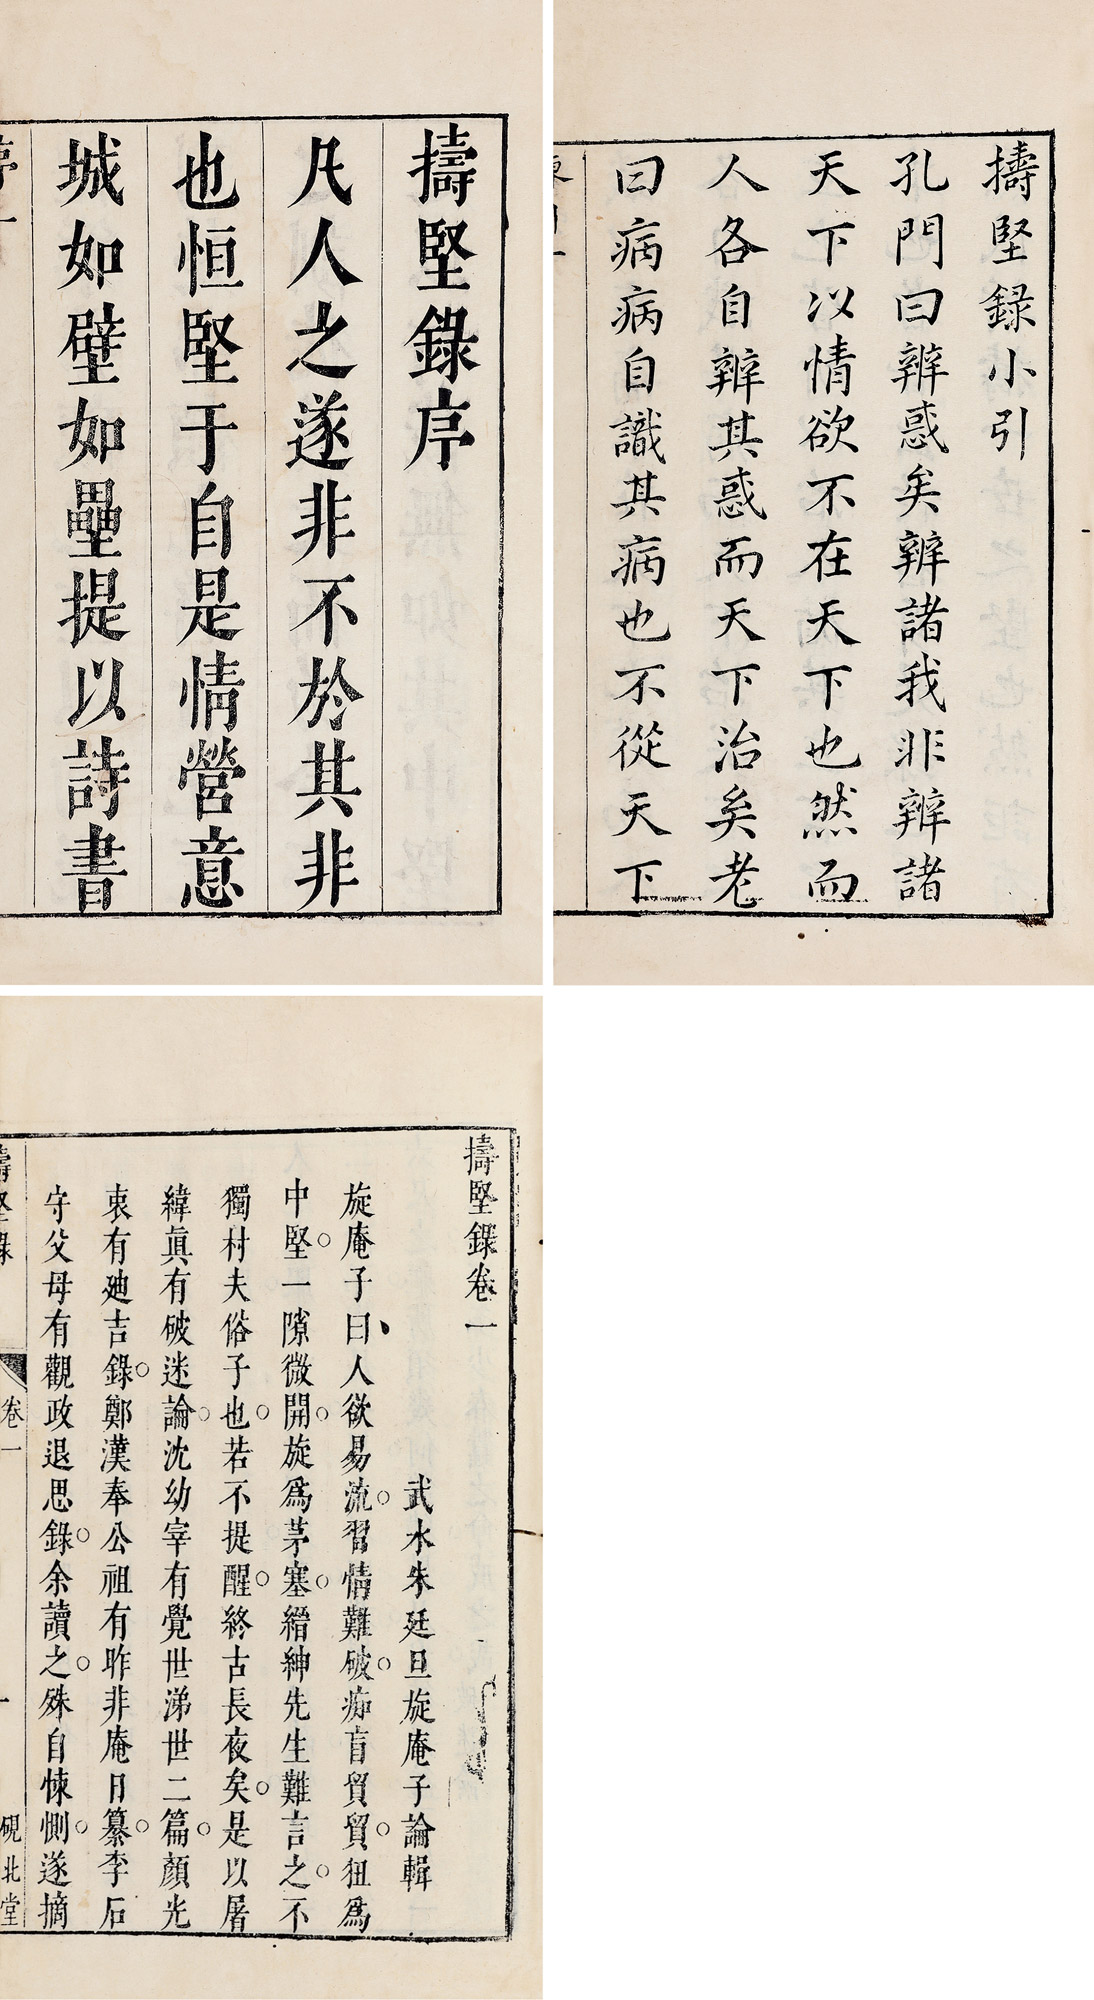 擣堅錄序
凡人之遂非不於其非
也恒堅于自是情營意
城如壁如壘提以詩書
擣堅録小引
孔門曰辨惑矣辨諸我非辨諸
天下以情欲不在天下也然而
人各自辨其惑而天下治矣老
曰病病自識其病也不從天下
擣堅錄卷一
武水朱廷旦旋庵子論輯
旋庵子曰人欲易流習情難破痴盲貿貿狃爲
中堅一隙微開旋爲茅塞縉紳先生難言之不
獨村夫俗子也若不提醒終古長夜矣是以屠
緯眞有破迷論沈幼宰有覺世涕世二篇顏光
衷有廸吉錄鄭漢奉公祖有昨非庵日纂李石
守父母有觀政退思錄余讀之殊自悚惻遂摘
擣堅錄
卷一
一
硯北堂